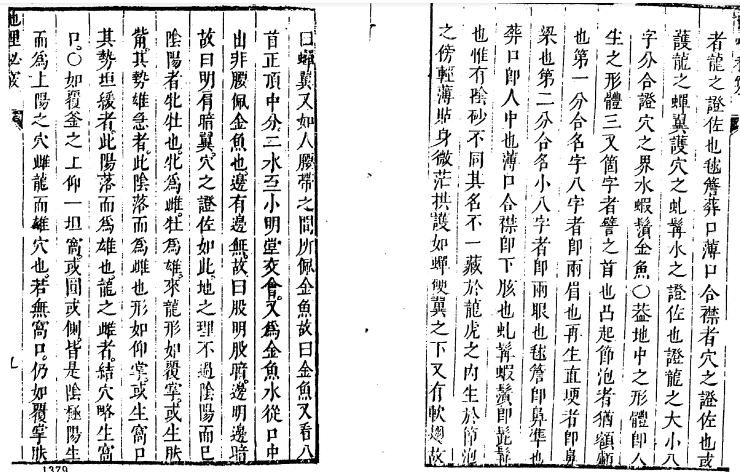 者龍之證佐也毬簷葬口薄口合襟者穴之證佐也或
護龍之蟬翼護穴之虬髯水之證佐也證龍之大小八
字分合證穴之界水蝦鬚金魚〇葢地中之形體即人
生之形體三叉箇字者譬之首也凸起節泡者猶額顱
也第一分合名字八字者即兩眉也再生直埂者即鼻
梁也第二分合名小八字者即兩眼也毬簷即鼻準也
葬口即人中也薄口合襟即下胲也虬髯蝦鬚即髭髯
也惟有陰砂不同其名不一藏於龍虎之內生於節泡
之傍輕薄貼身微茫拱護如蟬硬翼之下又有軟翅故
曰蟬翼又如人腰帶之間所佩金魚故曰金魚又看八
首正頂中分二水至小明堂交會又為金魚水從口中
出非腰佩金魚也邊有邊無故曰股明股暗邊明邊暗
故曰明肩暗翼穴之證佐如此地之理不過陰陽而巳
陰陽者牝牡也牝為雌牡為雄來龍形如覆掌或生脉
觜其勢雄急者此陰落而為雌也形如仰掌或生窩口
其勢坦緩者此陽落而為雄也龍之雌者結穴略生窩
口〇如覆釜之上仰一坦窩或囬或側皆是陰極陽生
而為上陽之穴雌龍而雄穴也若無窩口仍如覆掌脉
九
1379